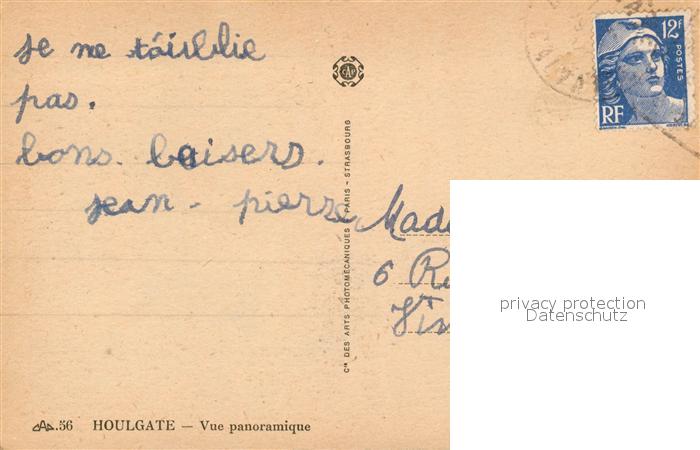 je ne t'oiublie
pas.
bons. baisers.
jean - pierre
Made
6 Ru
Vin
12F
POSTES
RF
CAP
Cie DES ARTS PHOTOMÉCANIQUES - PARIS - STRASBOURG
CAP. 56 HOULGATE — Vue panoramique
privacy protection
Datenschutz